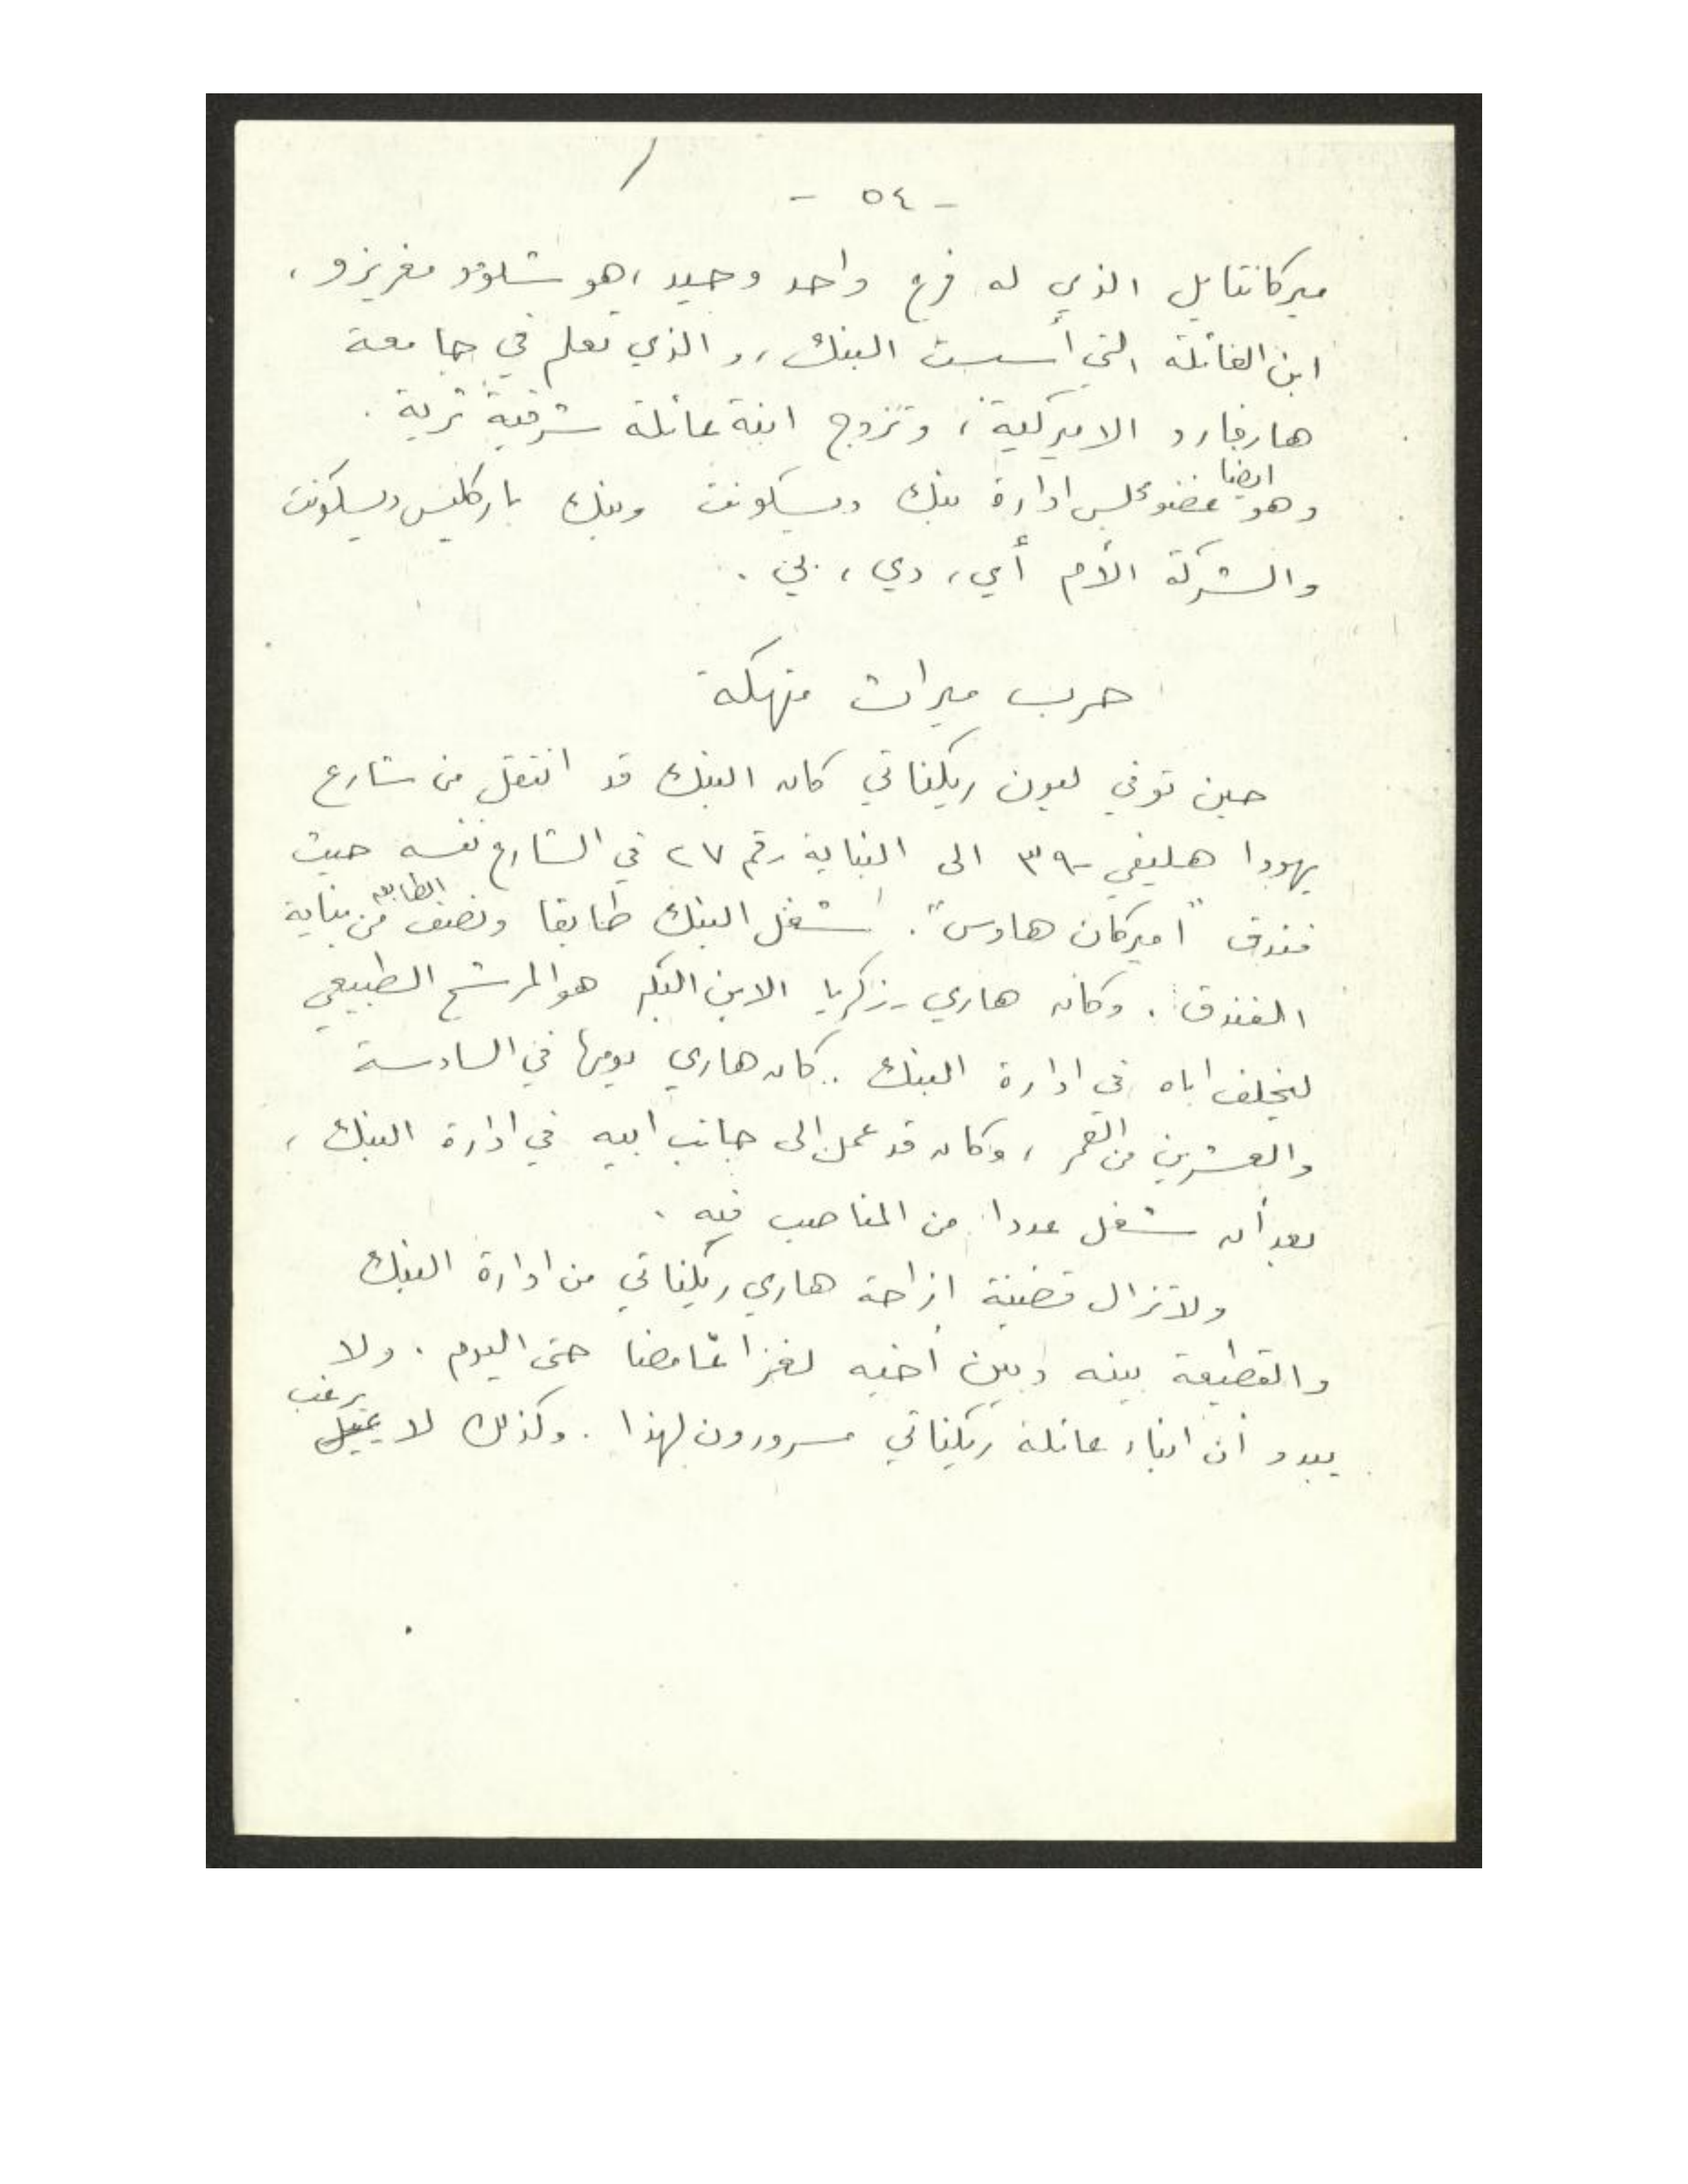 - ٥٤ -
ميركانتايل الذي له فرع واحد وحيد، هو شلومو مغريزو،
ابن العائلة التي أسست البنك، والذي تعلم في جامعة
هارفارد الاميركية، وتزوج ابنة عائلة شرقية ثرية.
وهو ايضا عضو مجلس ادارة بنك ديسكونت وبنك باركليس ديسكونت
والشركة الأم أي، دي، بي.
حرب ميراث منهكة
حين توفي ليون ريكناتي كان البنك قد انتقل من شارع
يهودا هليفي ٣٩ الى البناية رقم ٢٧ في الشارع نفسه حيث
فندق "اميركان هاوس". شغل البنك طابقا ونصف الطابق من بناية
الفندق. وكان هاري - زكريا الابن البكر هو المرشح الطبيعي
ليخلف اباه في ادارة البنك.. كان هاري يومها في السادسة
والعشرين من العمر، وكان قد عمل الى جانب ابيه في ادارة البنك،
بعد أن شغل عددا من المناصب فيه.
ولا تزال قضية ازاحة هاري ريكناتي من ادارة البنك
والقطيعة بينه وبين أخيه لغزا غامضا حتى اليوم. ولا
يبدو أن ابناء عائلة ريكناتي مسرورون لهذا. وكذلك لا يرغب